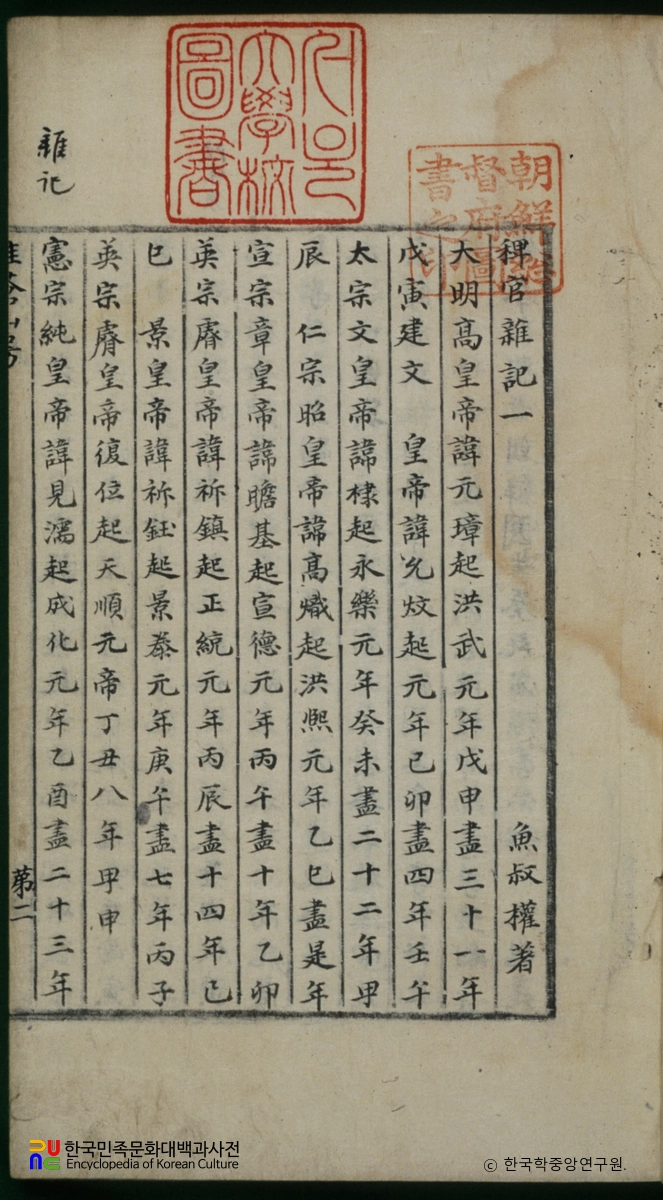 서울
大學校
圖書
朝鮮總
督府圖
書之印
雜记
稗官雜記一 魚叔權著
大明高皇帝諱元璋起洪武元年戊申盡三十一年
戊寅建文 皇帝諱允炆起元年己卯盡四年壬午
太宗文皇帝諱棣起永樂元年癸未盡二十二年甲
辰 仁宗昭皇帝諱高熾起洪熙元年乙巳盡是年
宣宗章皇帝諱瞻基起宣德元年丙午盡十年乙卯
英宗睿皇帝諱祁鎮起正統元年丙辰盡十四年己
巳 景皇帝諱祁鈺起景泰元年庚午盡七年丙子
英宗睿皇帝復位起天順元帝丁丑八年甲申
憲宗純皇帝諱見濡起成化元年乙酉盡二十三年
第二
한국민족문화대백과사전
Encyclopedia of Korean Culture
© 한국학중앙연구원.